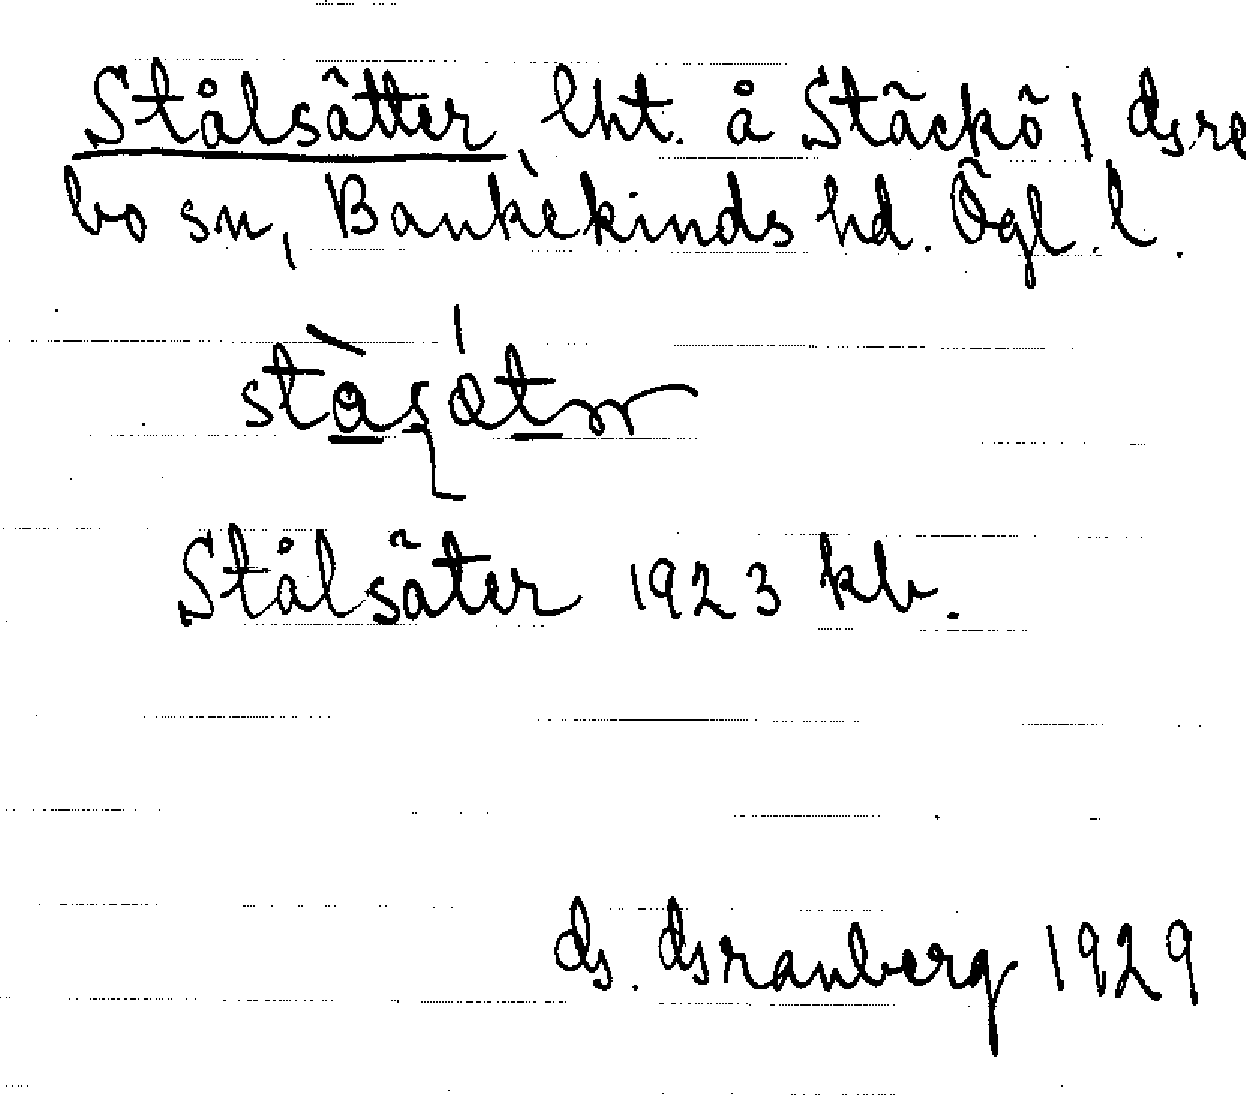 Stålsätter, lht. å Stäckö, Gre
bo sn, Bankekinds hd. Ögl. l.
Stålsäter 1923 kb.
G. Granberg 1929